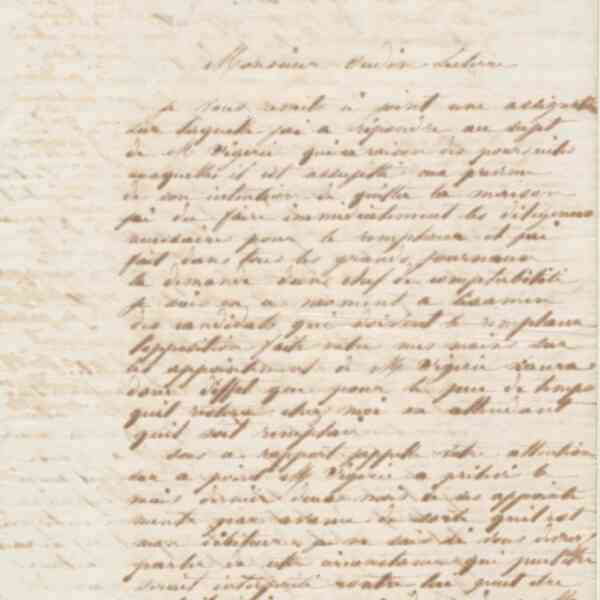 Monsieur
Je vous remets ci joint une assignation
sur laquelle j'ai a répondre au sujet
de M Vigerie qui en raison des poursuites
auxquelles il est assujetti ma prévenu
de son intention de quitter la maison
j'ai du faire immédiatement les diligences
nécessaires pour le remplacer et j'ai
fait dans tous les grands journaux
la demande d'un chef de comptabilité
Je suis en ce moment a l'examen
des candidats qui doivent le remplacer
l'opposition faite entre mes mains sur
les appointements de M Vigerie n'aura
donc d'effet que pour le peu de temps
qu'il restera chez moi en attendant
qu'il soit remplacé
Sous ce rapport j'appelle votre attention
sur ce point M Vigerie a prélevé le
mois dernier deux mois de ses appointe
ments par avance de sorte qu'il est
mon débiteur je ne sais si vous devez
parler de cette circonstance qui peut être
serait interprétée contre lui